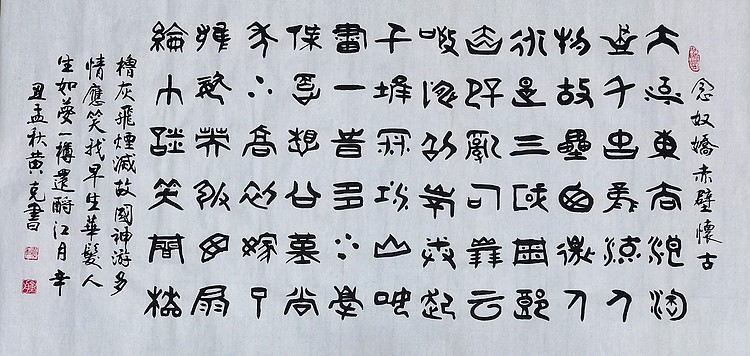 念奴嬌赤壁懷古
大江東去浪淘
盡千古風流人
物故壘西邊人
道是三國周郎
赤壁亂石崩云
驚濤裂岸捲起
千堆雪江山如
畫一時多少豪
傑遙想公瑾當
年小喬初嫁了
雄姿英發羽扇
綸巾談笑間檣
櫓灰飛煙滅故國神游多
情應笑我早生華髮人
生如夢一樽還酹江月辛
丑孟秋黃克書